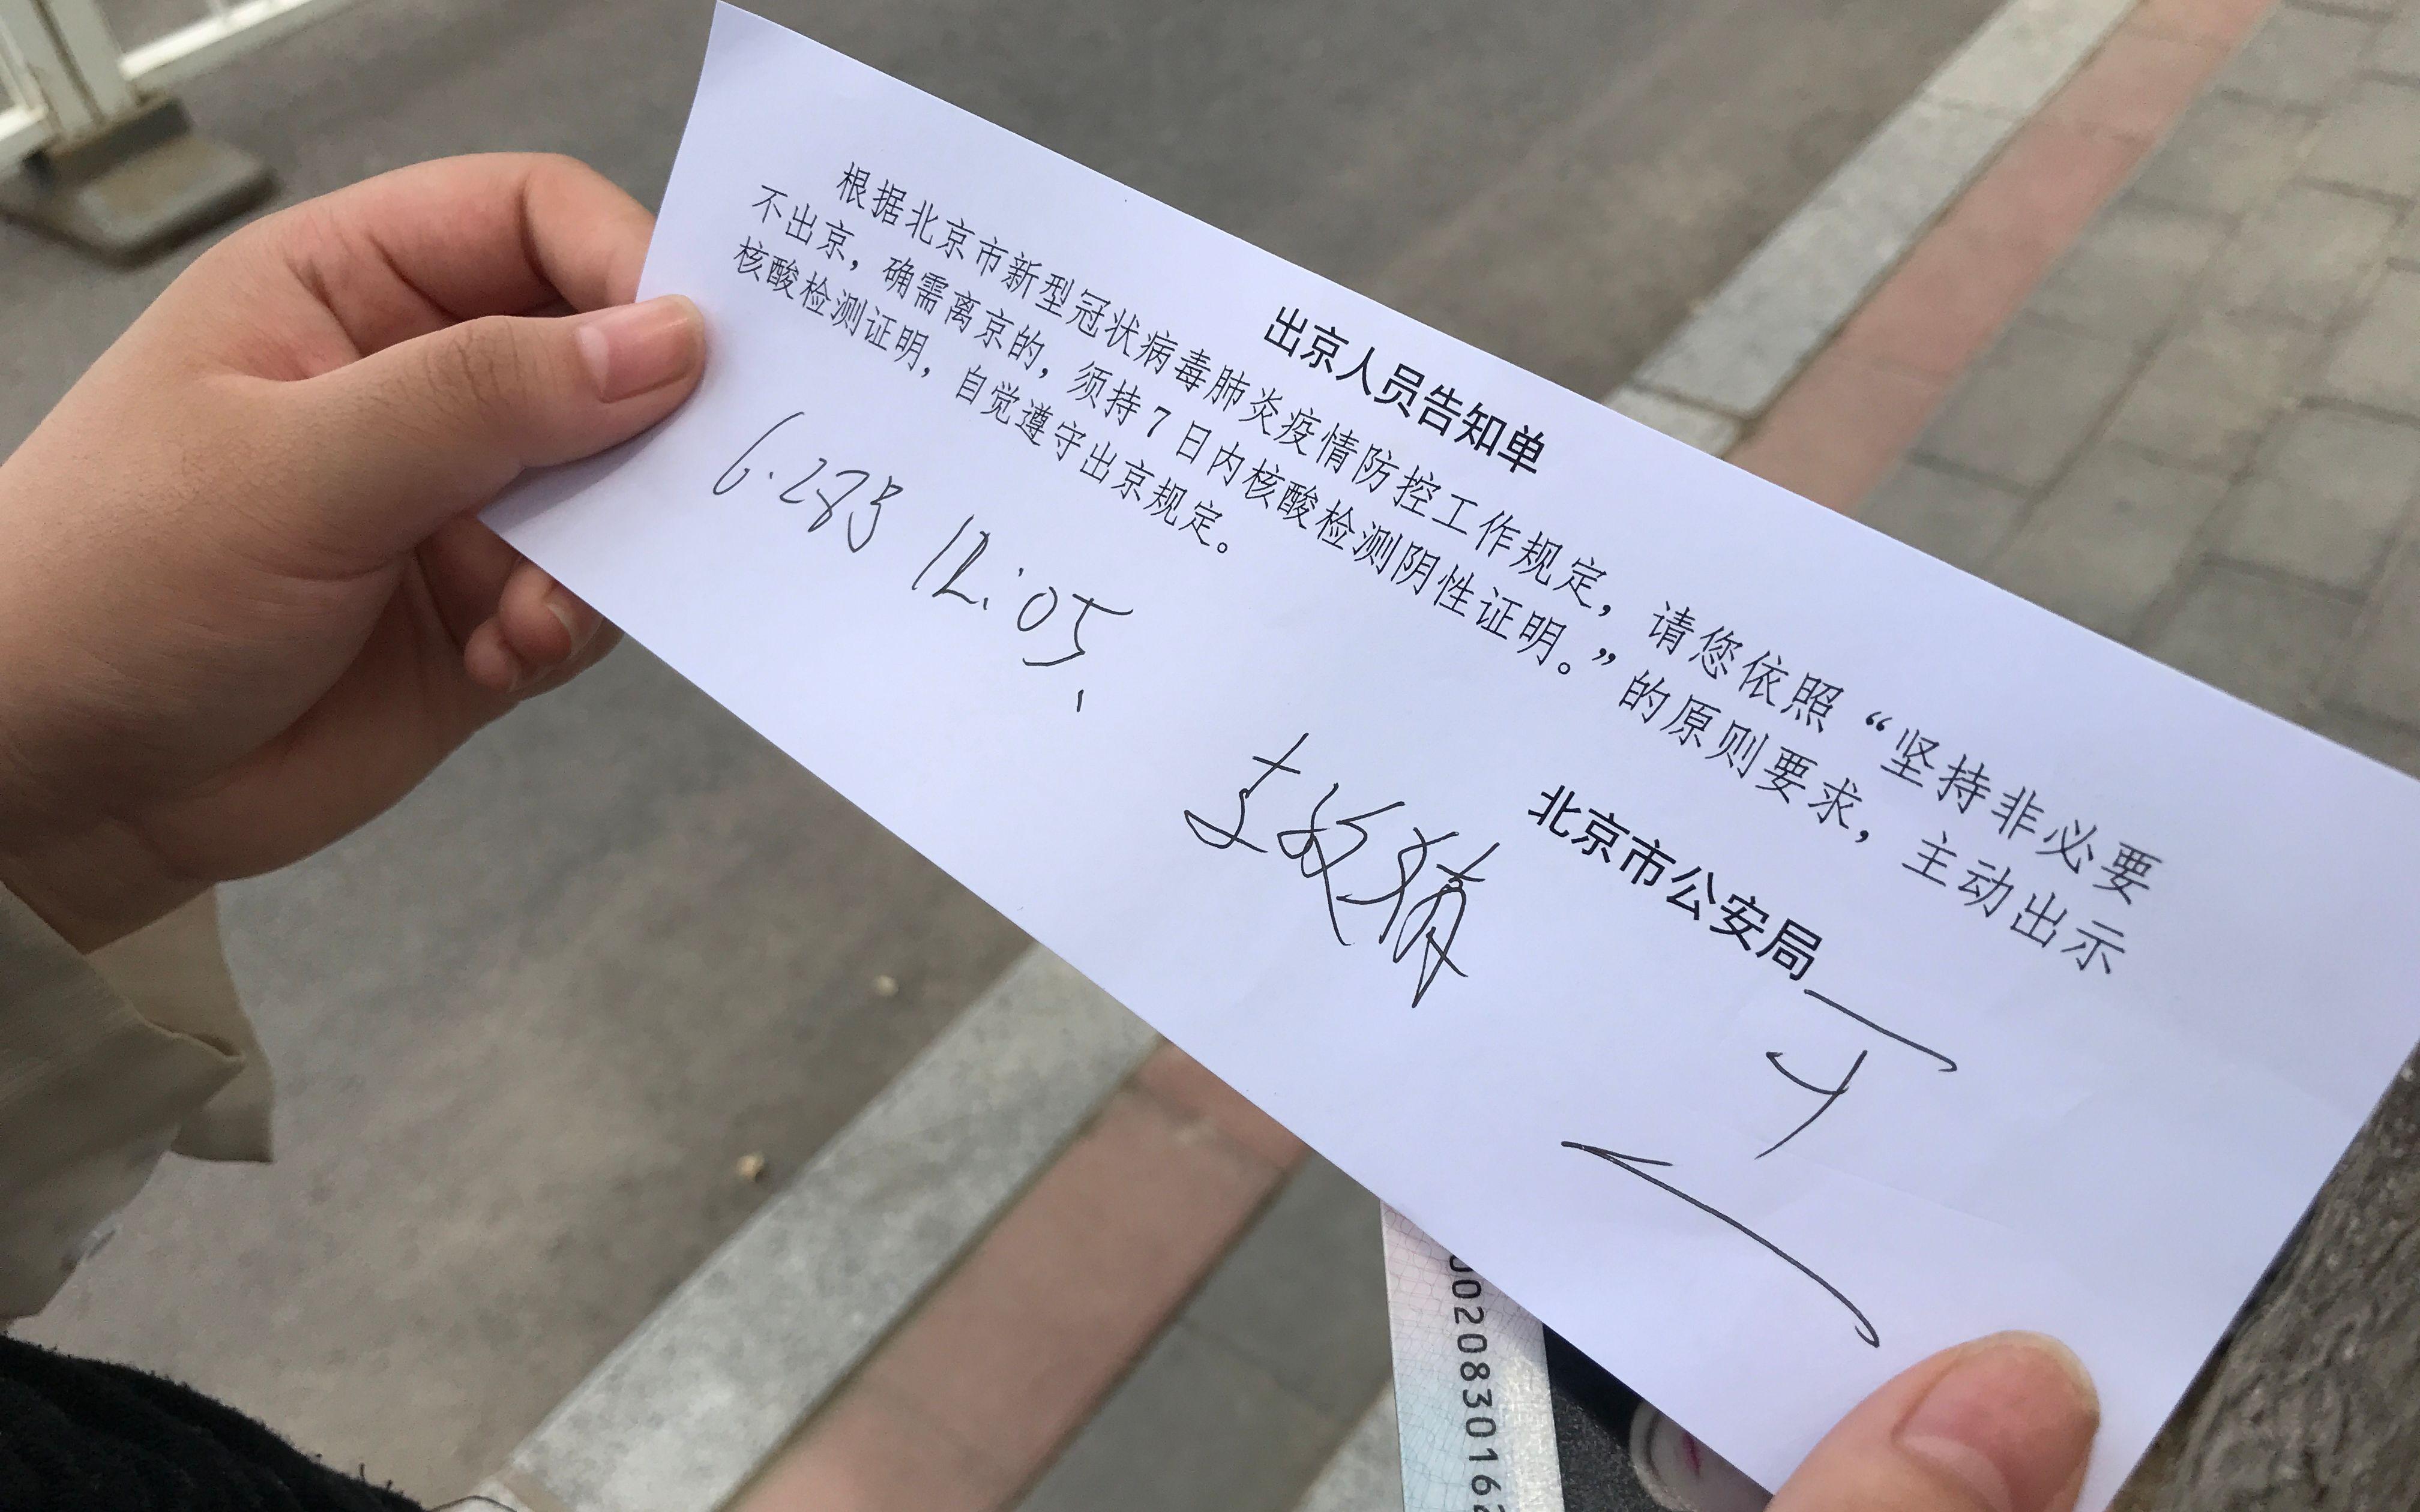 出京人员告知单
根据北京市新型冠状病毒肺炎疫情防控工作规定，请您依照“坚持非必要
不出京，确需离京的，须持7日内核酸检测阴性证明。”的原则要求，主动出示
核酸检测证明，自觉遵守出京规定。
北京市公安局
6.28日 12:05
002083016